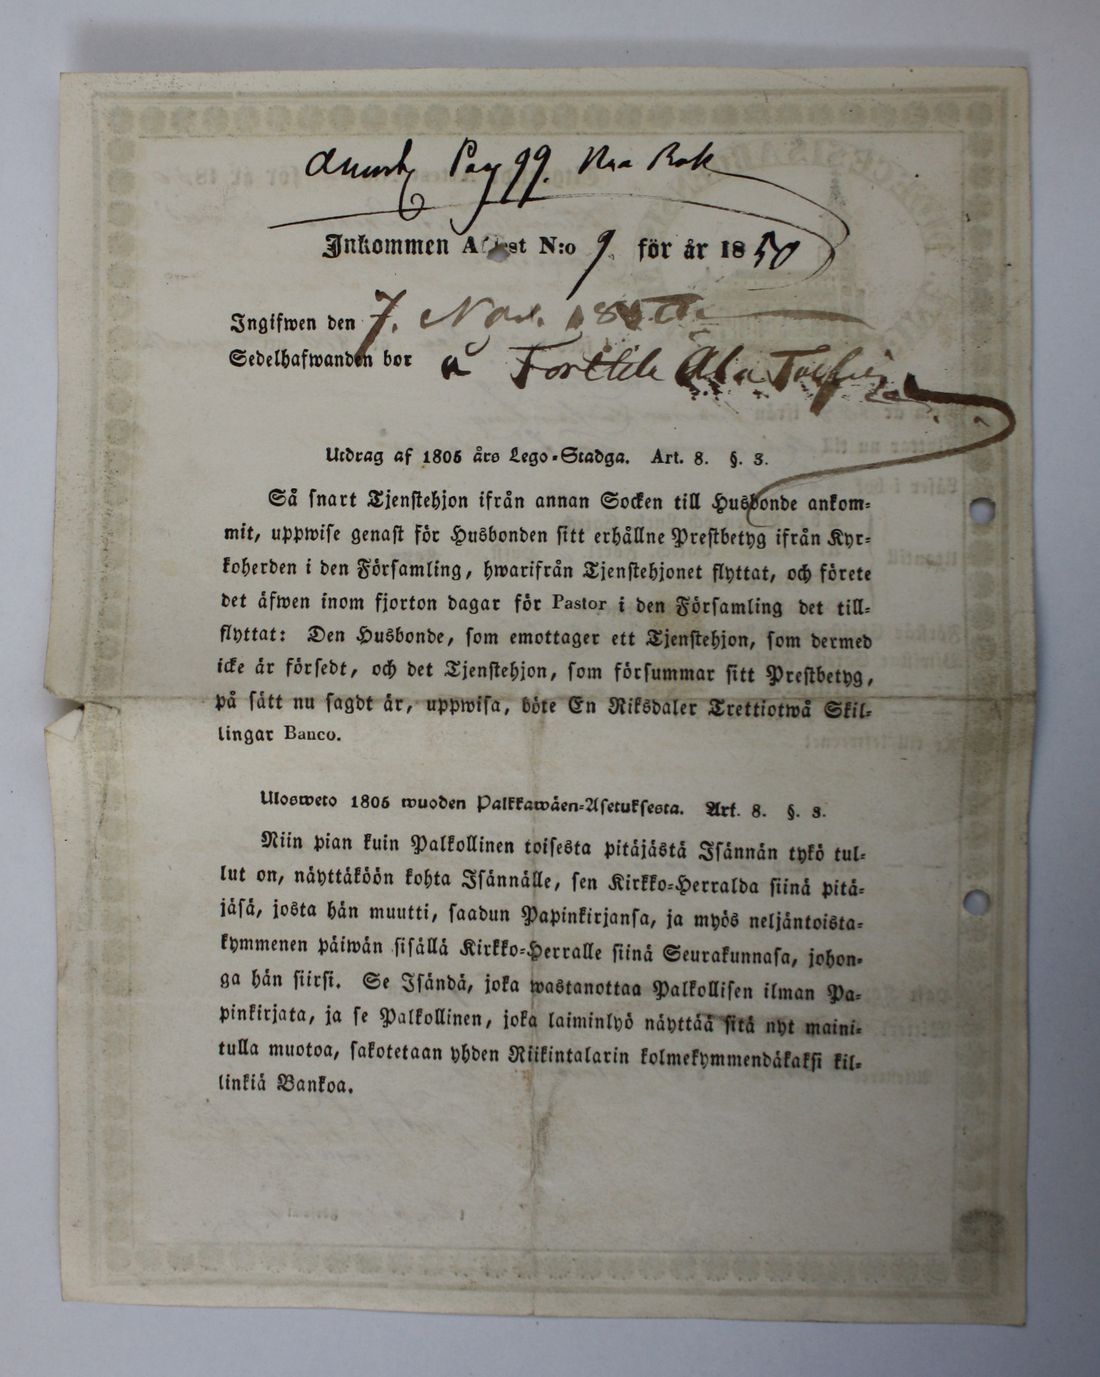 Pag 99. Nya Bok
Inkommen Attest N:o 9. för år 1850
Ingifwen den 7. Nov. 1850
Sedelhafwanden bor å
Utdrag af 1805 års Lego-Stadga. Art. 8. §. 3.
Så snart Tjenstehjon ifrån annan Socken till Husbonde ankom-
mit, uppwise genast för Husbonden sitt erhållne Prestbetyg ifrån Kyr-
koherden i den Församling, hwarifrån Tjenstehjonet flyttat, och förete
det äfwen inom fjorton dagar för Pastor i den Församling det till-
flyttat: Den Husbonde, som emottager ett Tjenstehjon, som dermed
icke är försedt, och det Tjenstehjon, som försummar sitt Prestbetyg,
på sätt nu sagdt är, uppwisa, böte En Riksdaler Trettiotwå Skil-
lingar Banco.
Ulosweto 1805 wuoden Palkkawäen-Asetuksesta. Art. 8. §. 3.
Niin pian kuin Palkollinen toisesta pitäjästä Isännän tykö tul-
lut on, näyttäköön kohta Isännälle, sen Kirkko-Herralda siinä pitä-
jäsä, josta hän muutti, saadun Papinkirjansa, ja myös neljäntoista-
kymmenen päiwän sisällä Kirkko-Herralle siinä Seurakunnasa, johon-
ga hän siirsi. Se Isändä, joka wastanottaa Palkollisen ilman Pa-
pinkirjata, ja se Palkollinen, joka laiminlyö näyttää sitä nyt maini-
tulla muotoa, sakotetaan yhden Riikintalarin kolmekymmendäkaksi kil-
linkiä Bankoa.